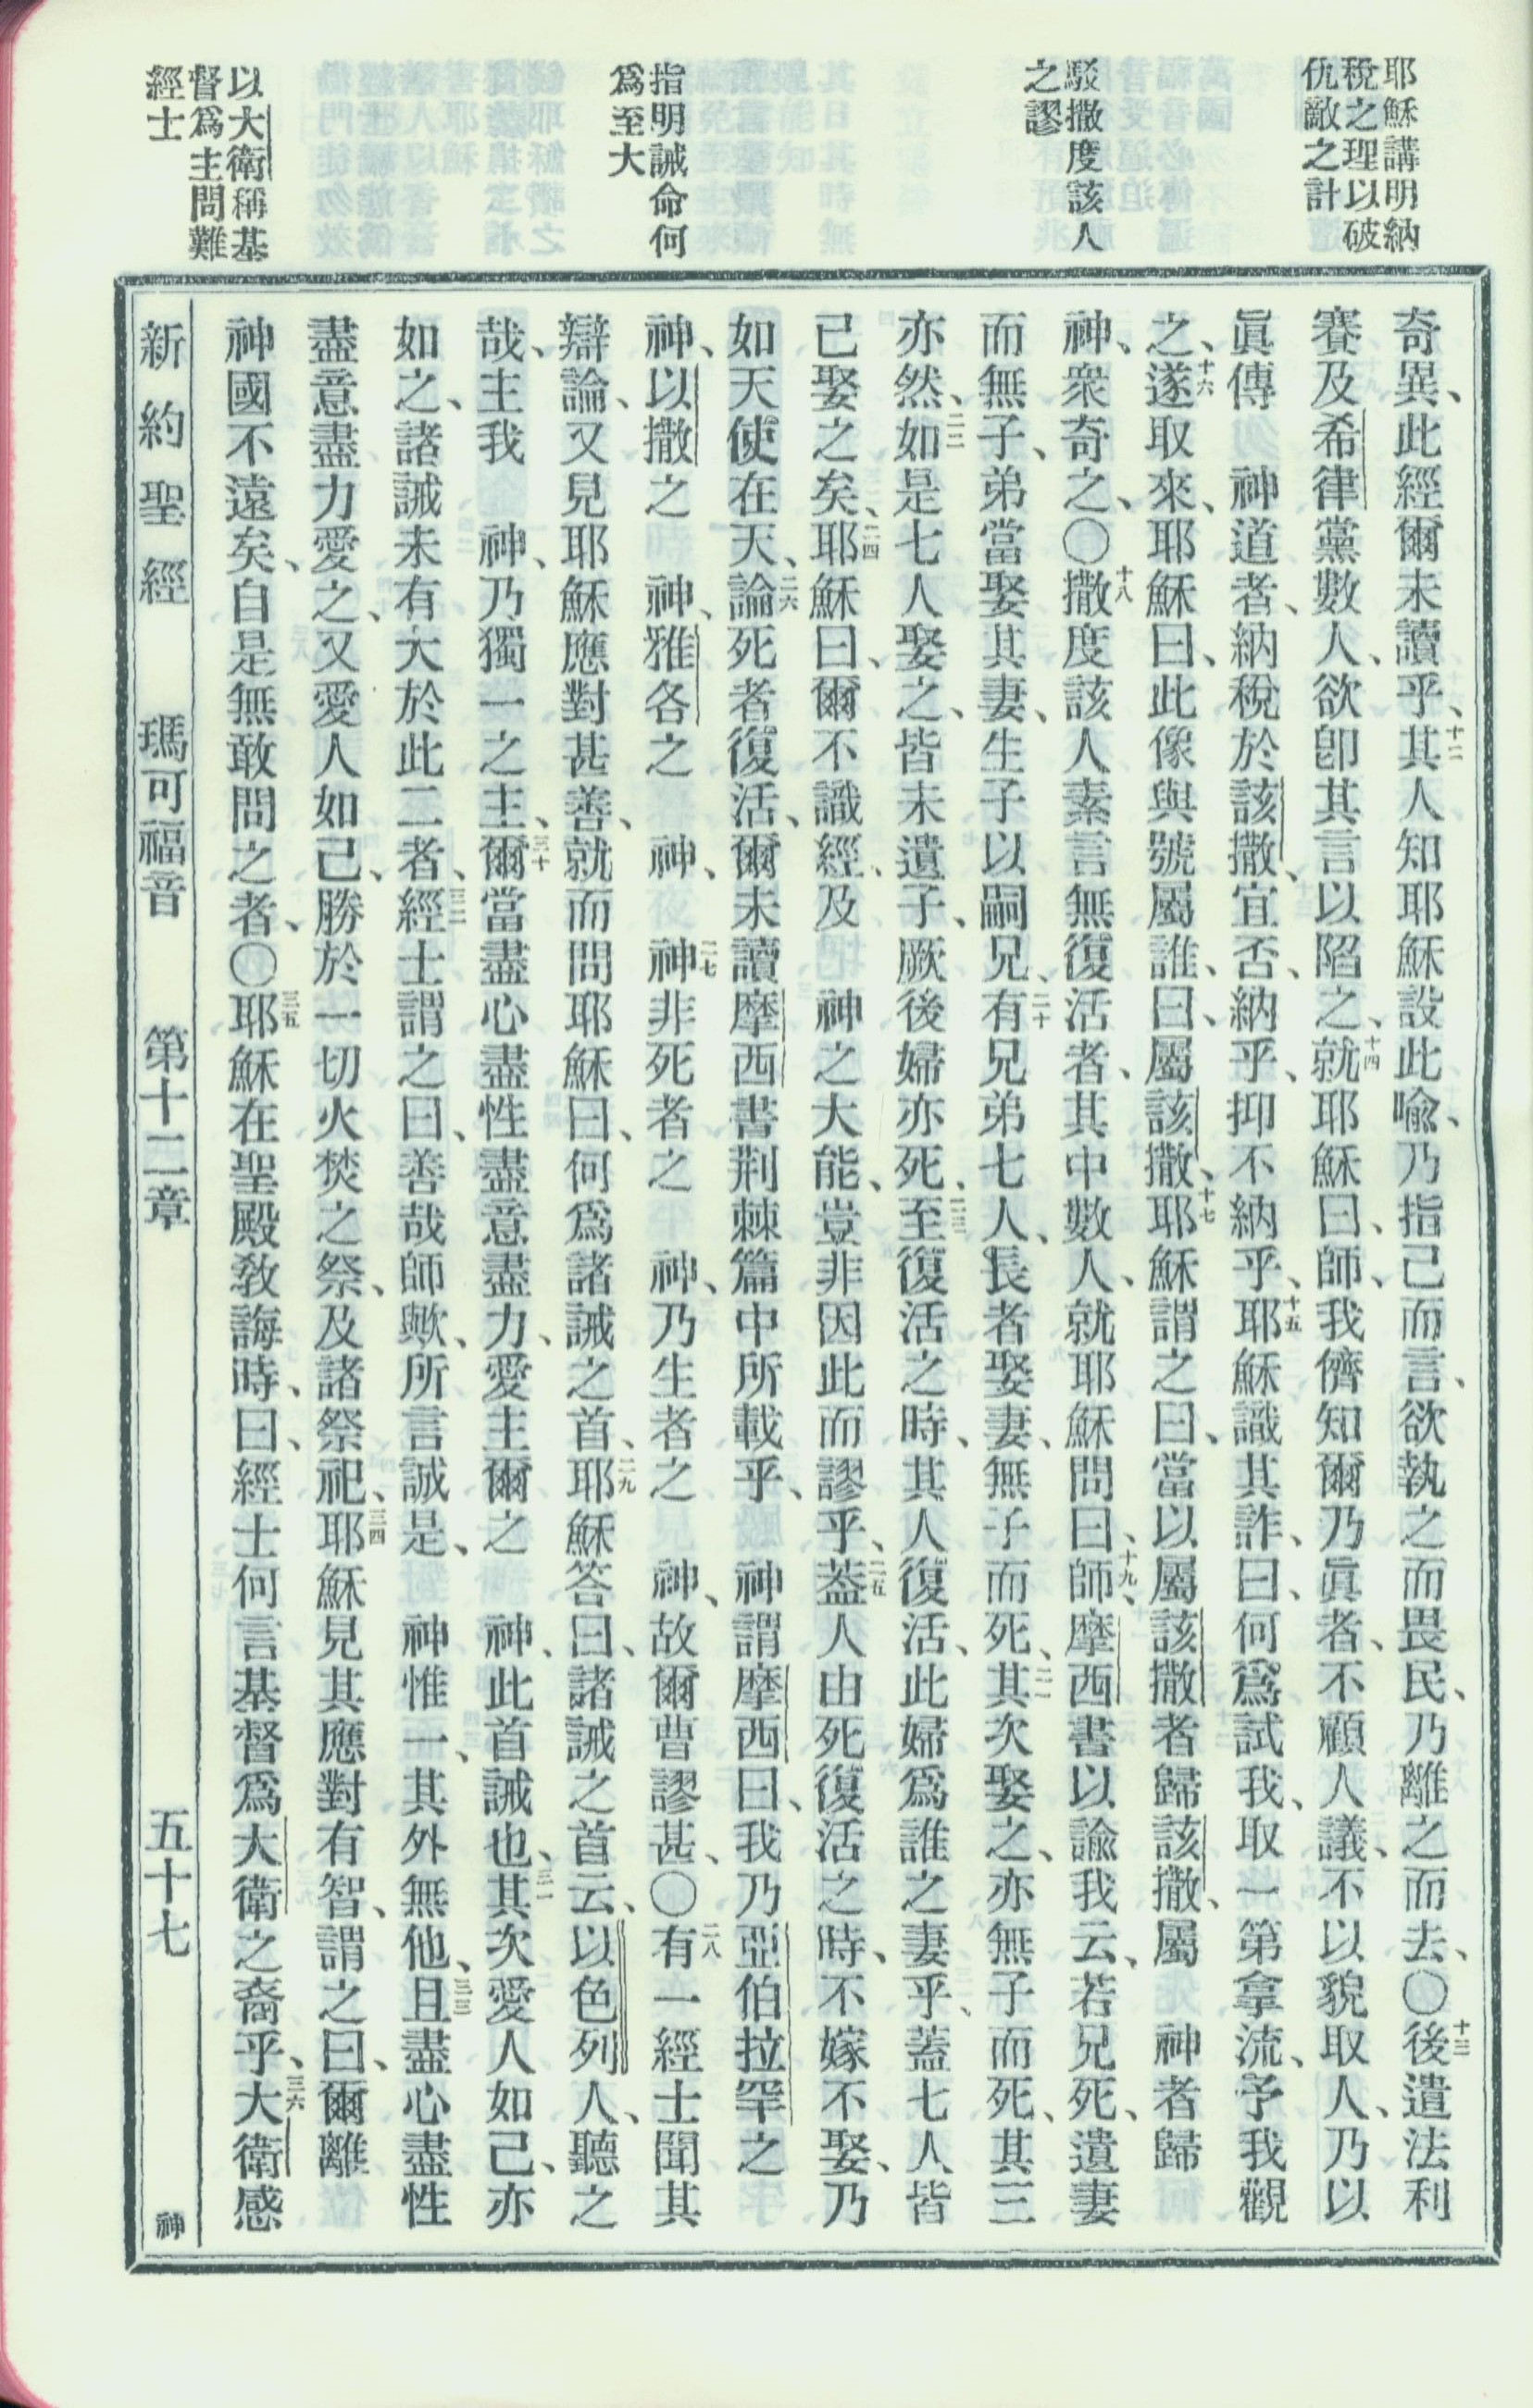 耶穌講明納
稅之理以破
仇敵之計
駁撒度該人
之謬
指明誡命何
為至大
以大衛稱基
督爲主問難
經士
奇異、此經爾未讀乎、十二其人知耶穌設此喻、乃指己而言、欲執之而畏民、乃離之而去、〇十三後遣法利
賽及希律黨數人、欲卽其言以陷之、十四就耶穌曰、師、我儕知爾乃眞者、不顧人議、不以貌取人、乃以
眞傳　神道者、納稅於該撒、宜否、納乎、抑不納乎、十五耶穌識其詐、曰、何爲試我、取一第拿流、予我觀
之、十六遂取來、耶穌曰、此像與號屬誰、曰、屬該撒、十七耶穌謂之曰、當以屬該撒者歸該撒、屬　神者歸
神、衆奇之、〇十八撒度該人素言無復活者、其中數人、就耶穌問曰、十九師、摩西書以諭我云、若兄死、遺妻
而無子、弟當娶其妻、生子以嗣兄、二十有兄弟七人、長者娶妻、無子而死、二一其次娶之、亦無子而死、其三
亦然、二二如是七人娶之、皆未遺子、厥後婦亦死、二三至復活之時、其人復活、此婦爲誰之妻乎、蓋七人皆
已娶之矣、二四耶穌曰、爾不識經、及　神之大能、豈非因此而謬乎、二五蓋人由死復活之時、不嫁不娶、乃
如天使在天、二六論死者復活、爾未讀摩西書荆棘篇中所載乎、　神謂摩西曰、我乃亞伯拉罕之
神、以撒之　神、雅各之　神、二七神非死者之　神、乃生者之　神、故爾曹謬甚、〇二八有一經士聞其
辯論、又見耶穌應對甚善、就而問耶穌曰、何爲諸誡之首、二九耶穌答曰、諸誡之首云、以色列人、聽之
哉、主我　神、乃獨一之主、三十爾當盡心盡性盡意盡力、愛主爾之　神、此首誡也、三一其次愛人如己、亦
如之、諸誡未有大於此二者、三二經士謂之曰、善哉師歟、所言誠是、　神惟一、其外無他、三三且盡心盡性
盡意盡力愛之、又愛人如己、勝於一切火焚之祭、及諸祭祀、三四耶穌見其應對有智、謂之曰、爾離
神國不遠矣、自是無敢問之者、〇三五耶穌在聖殿敎誨時、曰、經士何言基督爲大衛之裔乎、三六大衛感
新約聖經　瑪可福音　第十二章　五十七　神